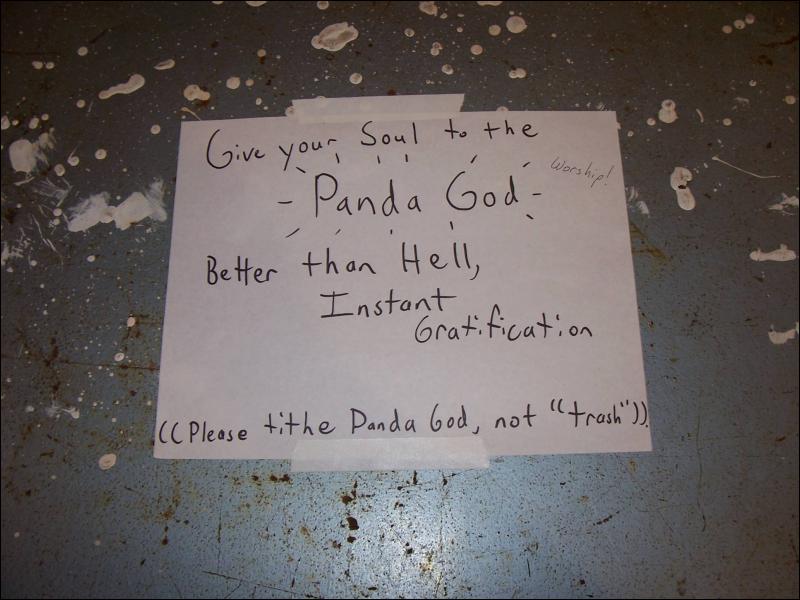 Give your Soul to the
- Panda God -
Worship!
Better than Hell,
Instant
Gratification
((Please tithe Panda God, not "trash"))